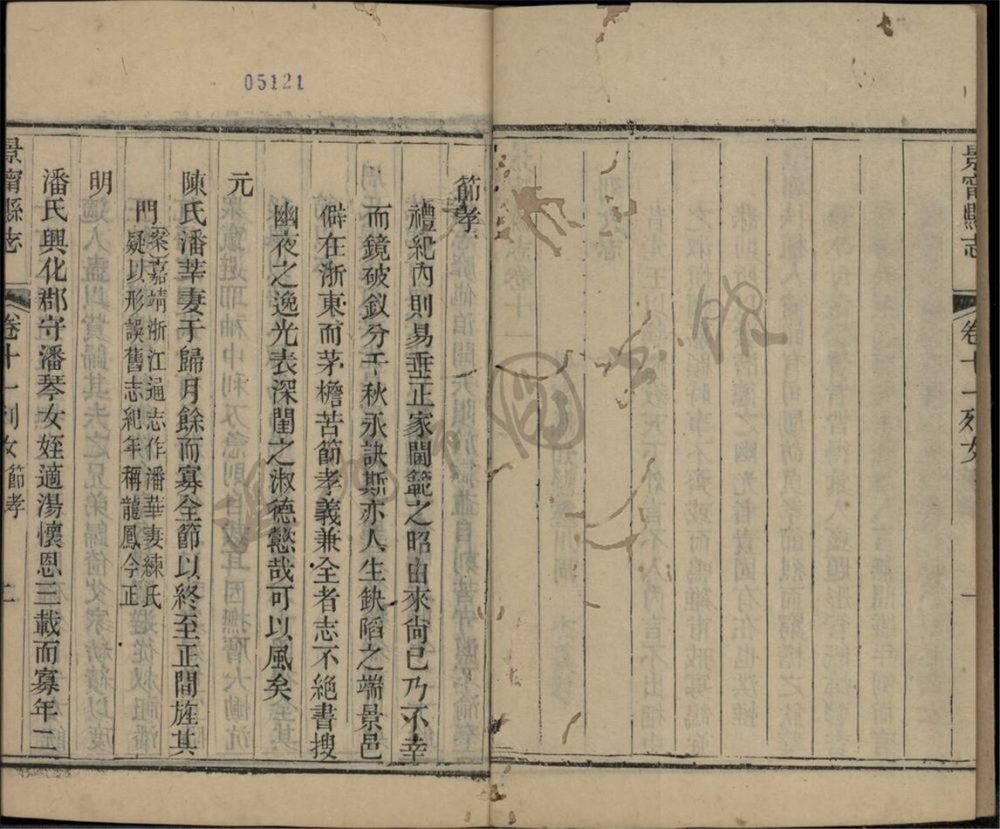 05121
景甯縣志
卷十一列女
一
節孝
禮紀內則易垂正家閫範之昭由來尙已乃不幸
而鏡破釵分千秋永訣斯亦人生缺陷之端景邑
僻在浙東而茅檐苦節孝義兼全者志不絕書搜
幽夜之逸光表深閨之淑德懿哉可以風矣
元
陳氏潘莘妻于歸月餘而寡全節以終至正間旌其
門案嘉靖浙江通志作潘華妻練氏
疑以形誤舊志紀年稱龍鳳今正
明
潘氏興化郡守潘琴女姪適湯懷恩三載而寡年二
景甯縣志
卷十一列女 節孝
二